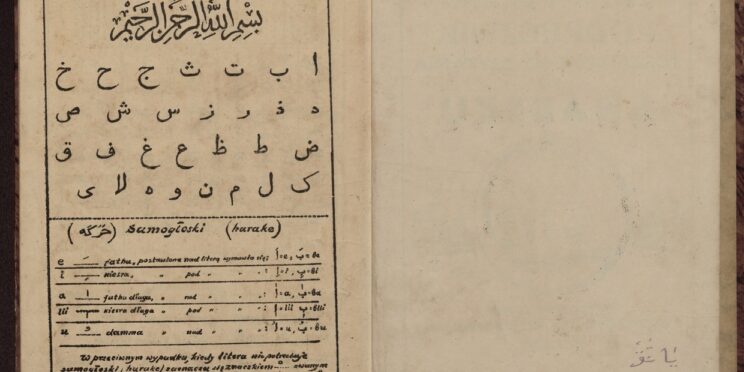 بِسْمِ اللهِ الرَّحْمٰنِ الرَّحِيْمِ
ا ب ت ث ج ح خ
د ذ ر ز س ش ص
ض ط ظ ع غ ف ق
ک ل م ن و ه لا ی
(حَرَكَه) Samogłoski (harake)
e fatha, postawiona nad literą wymawia się: اَ=e, بَ=be
i kiesra, " pod " " : اِ=i, بِ=bi
a fatha długa, " nad " " : =a, =ba
kiesra długa " pod " " :
u damma " nad " " : اُ=u, بُ=bu
W przeciwnym wypadku, kiedy litera nie potrzebuje
samogłoski, (harake) zaznacza się znaczkiem